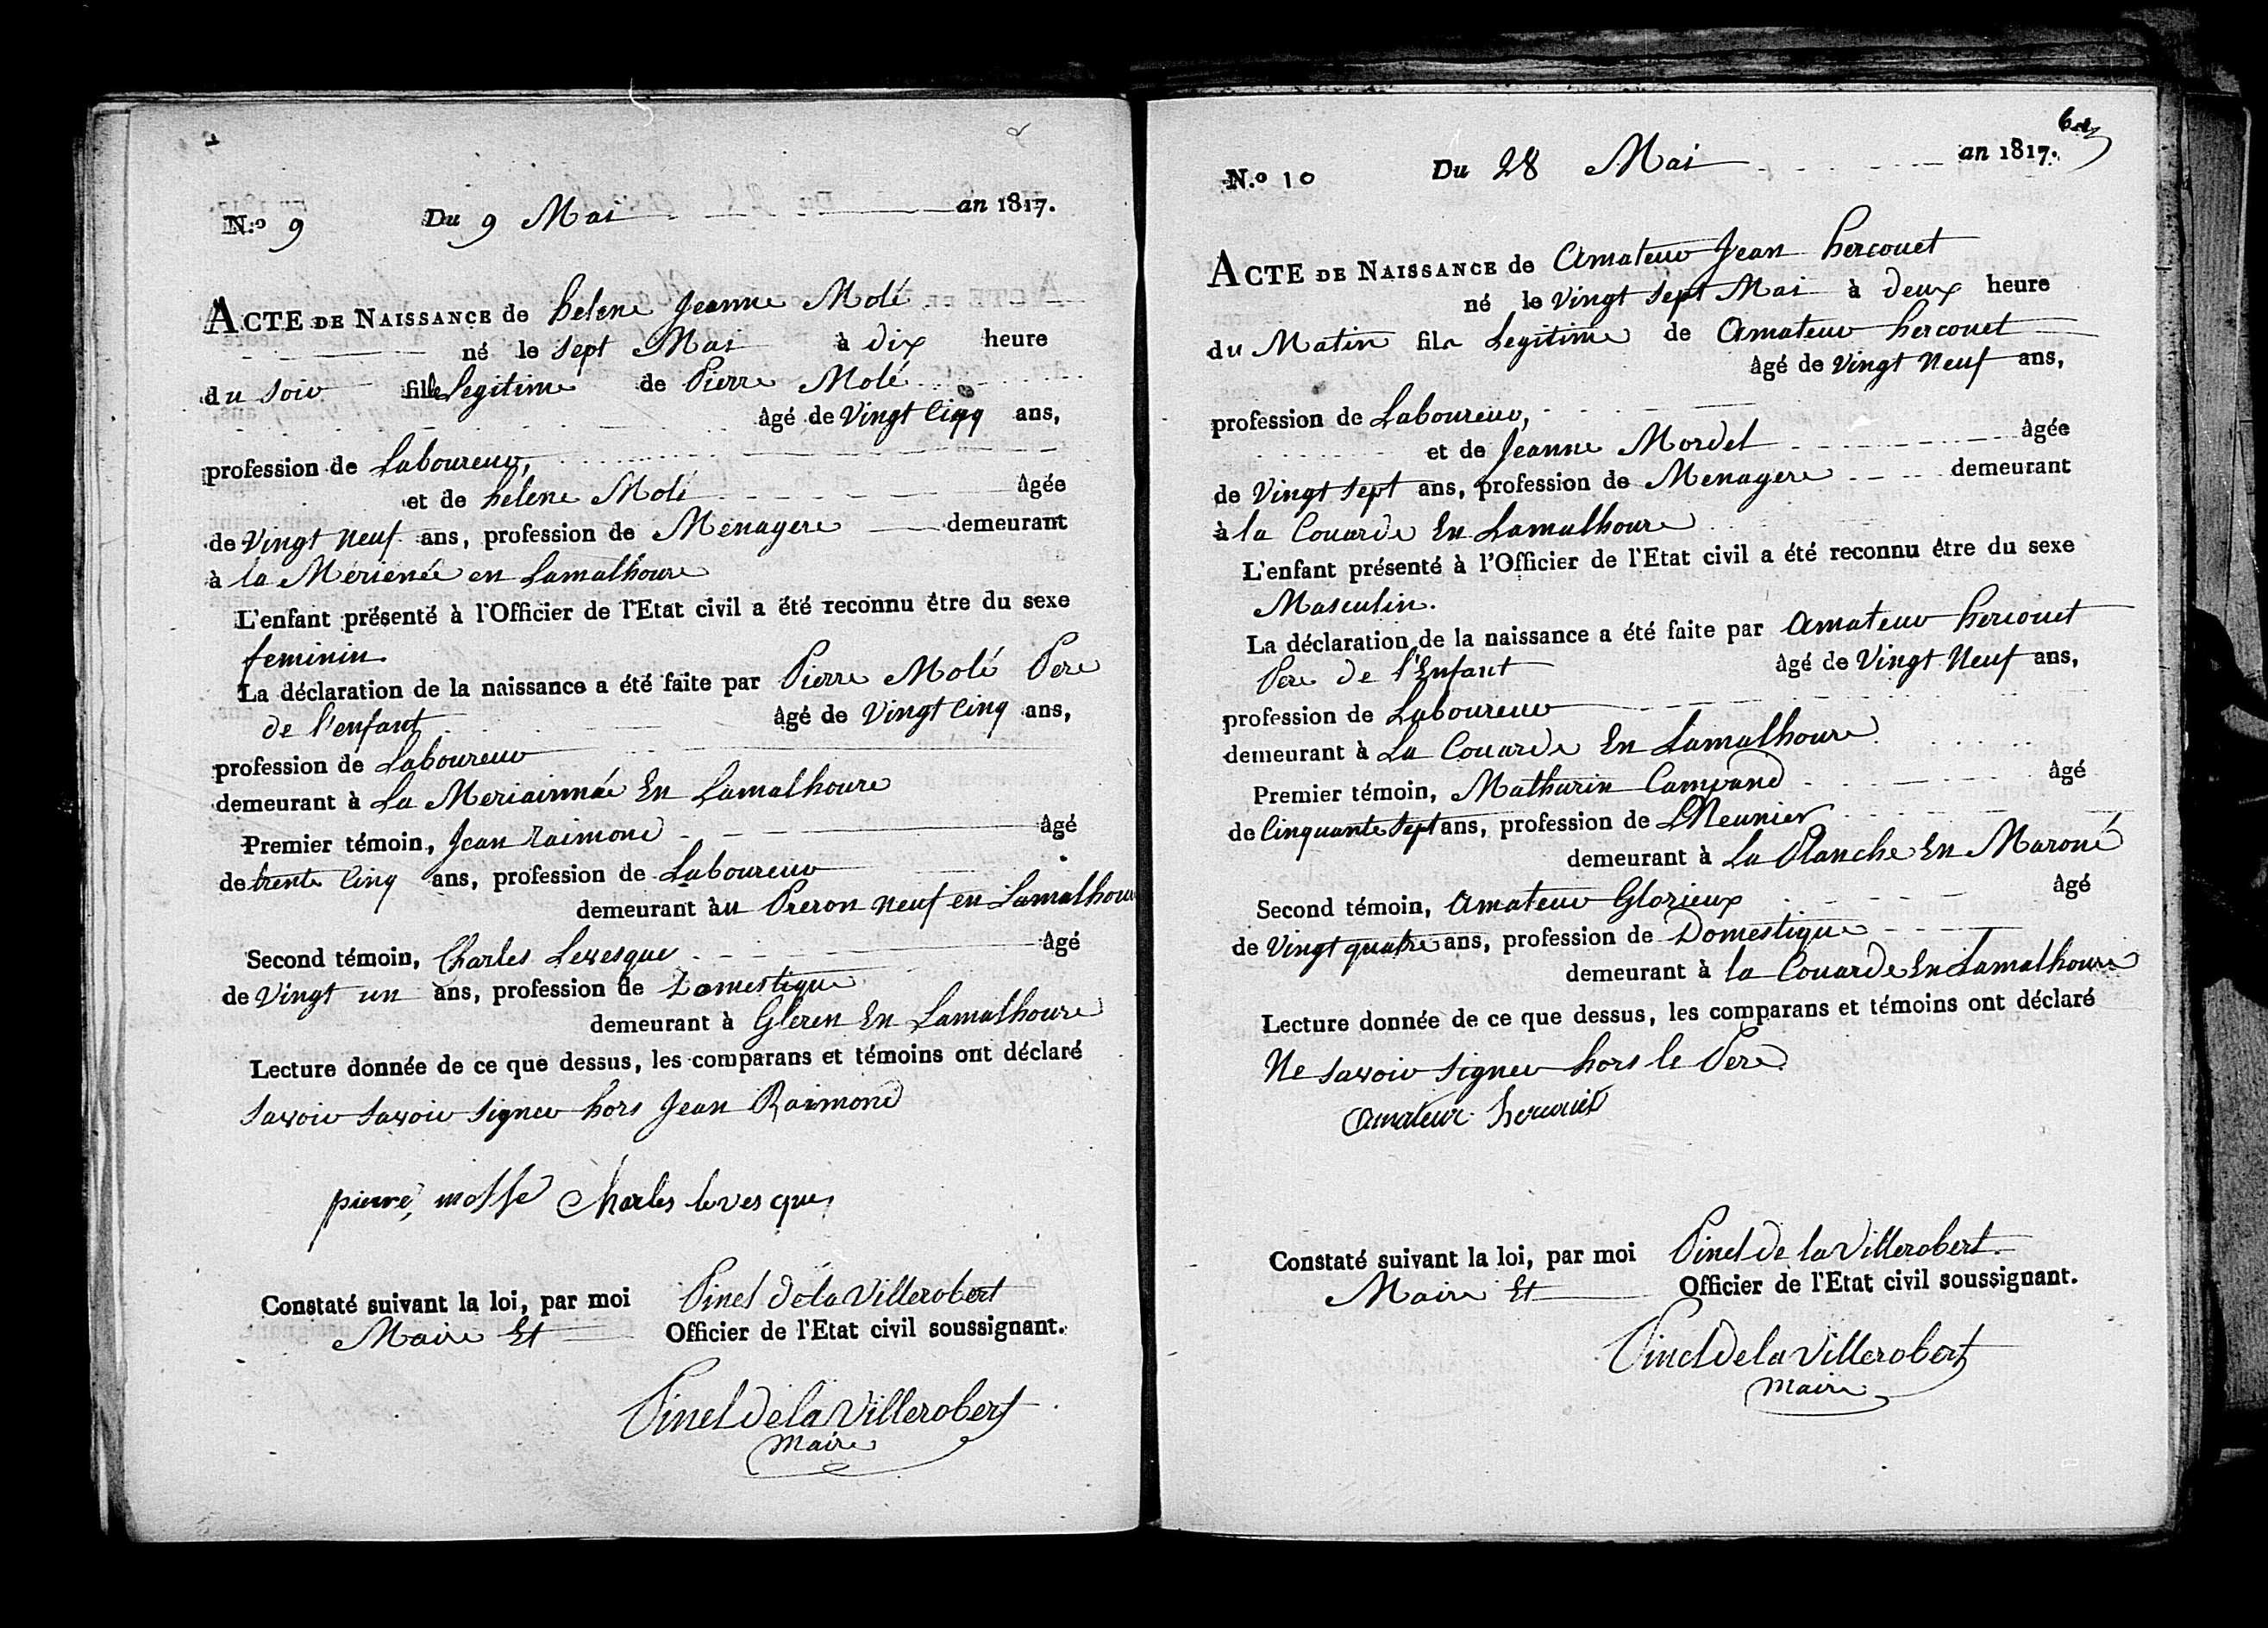 N.o 9 Du 9 Mai an 1817.
ACTE DE NAISSANCE de helene Jeanne Molé
né le Sept Mai à dix heure
du Soir fille Legitime de Pierre Molé
âgé de Vingt Cinq ans,
profession de Laboureur,
et de helene Molé âgée
de Vingt neuf ans, profession de Menagere demeurant
à la Merienée en Lamalhoure
L'enfant présenté à l'Officier de l'Etat civil a été reconnu être du sexe
feminin.
La déclaration de la naissance a été faite par Pierre Molé Pere
de l'enfant âgé de Vingt Cinq ans,
profession de Laboureur
demeurant à La Meriainnée En Lamalhoure
Premier témoin, Jean Raimond âgé
de trente Cinq ans, profession de Laboureur
demeurant àu Preron neuf en Lamalhoure
Second témoin, Charles Levesque âgé
de Vingt un ans, profession de Domestique
demeurant à Gleren En Lamalhoure
Lecture donnée de ce que dessus, les comparans et témoins ont déclaré
Savoir Savoir Signer hors Jean Raimond
pierre molle Charles levesque
Constaté suivant la loi, par moi Pinel De la Villerobert
Maire Et Officier de l'Etat civil soussignant.
Pinel De la Villerobert
Maire
6
N.o 10 Du 28 Mai an 1817.
ACTE DE NAISSANCE de Amateur Jean hercouet
né le Vingt Sept Mai à deux heure
du Matin fils Legitime de Amateur hercouet
âgé de Vingt Neuf ans,
profession de Laboureur,
et de Jeanne Mordel âgée
de Vingt Sept ans, profession de Menagere demeurant
à la Couarde En Lamalhoure
L'enfant présenté à l'Officier de l'Etat civil a été reconnu être du sexe
Masculin.
La déclaration de la naissance a été faite par Amateur hercouet
Pere de l'Enfant âgé de Vingt Neuf ans,
profession de Laboureur
demeurant à La Couarde En Lamalhoure
Premier témoin, Mathurin âgé
de Cinquante Sept ans, profession de Meunier
demeurant à La Planche En Maroué
Second témoin, Amateur Glorieux âgé
de Vingt quatre ans, profession de Domestique
demeurant à la Couarde En Lamalhoure
Lecture donnée de ce que dessus, les comparans et témoins ont déclaré
Ne Savoir Signer hors le Pere
Amateur hercouet
Constaté suivant la loi, par moi Pinel De la Villerobert.
Maire Et Officier de l'Etat civil soussignant.
Pinel De la Villerobert
Maire